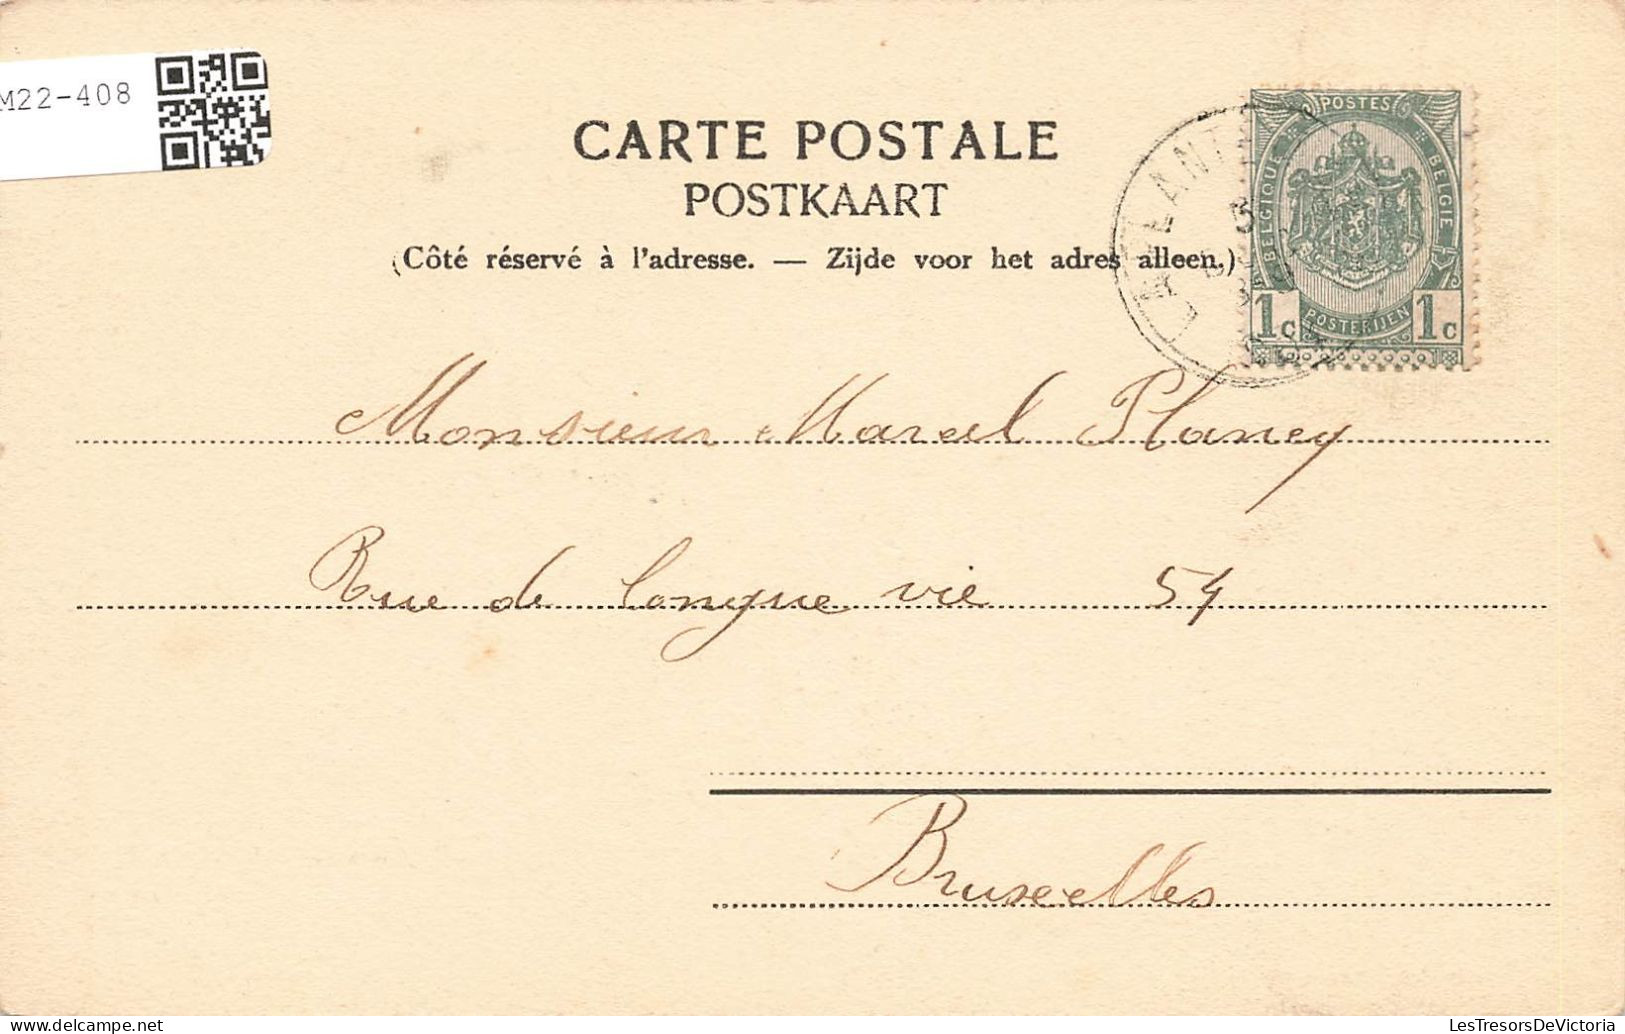 M22-408
CARTE POSTALE
POSTKAART
(Côté réservé à l'adresse. — Zijde voor het adres alleen.)
POSTES
BELGIQUE
BELGIE
1c
POSTERIJEN
1c
Monsieur Marcel Planey
Rue de longue vie 54
Bruxelles
delcampe.net
LesTresorsDeVictoria